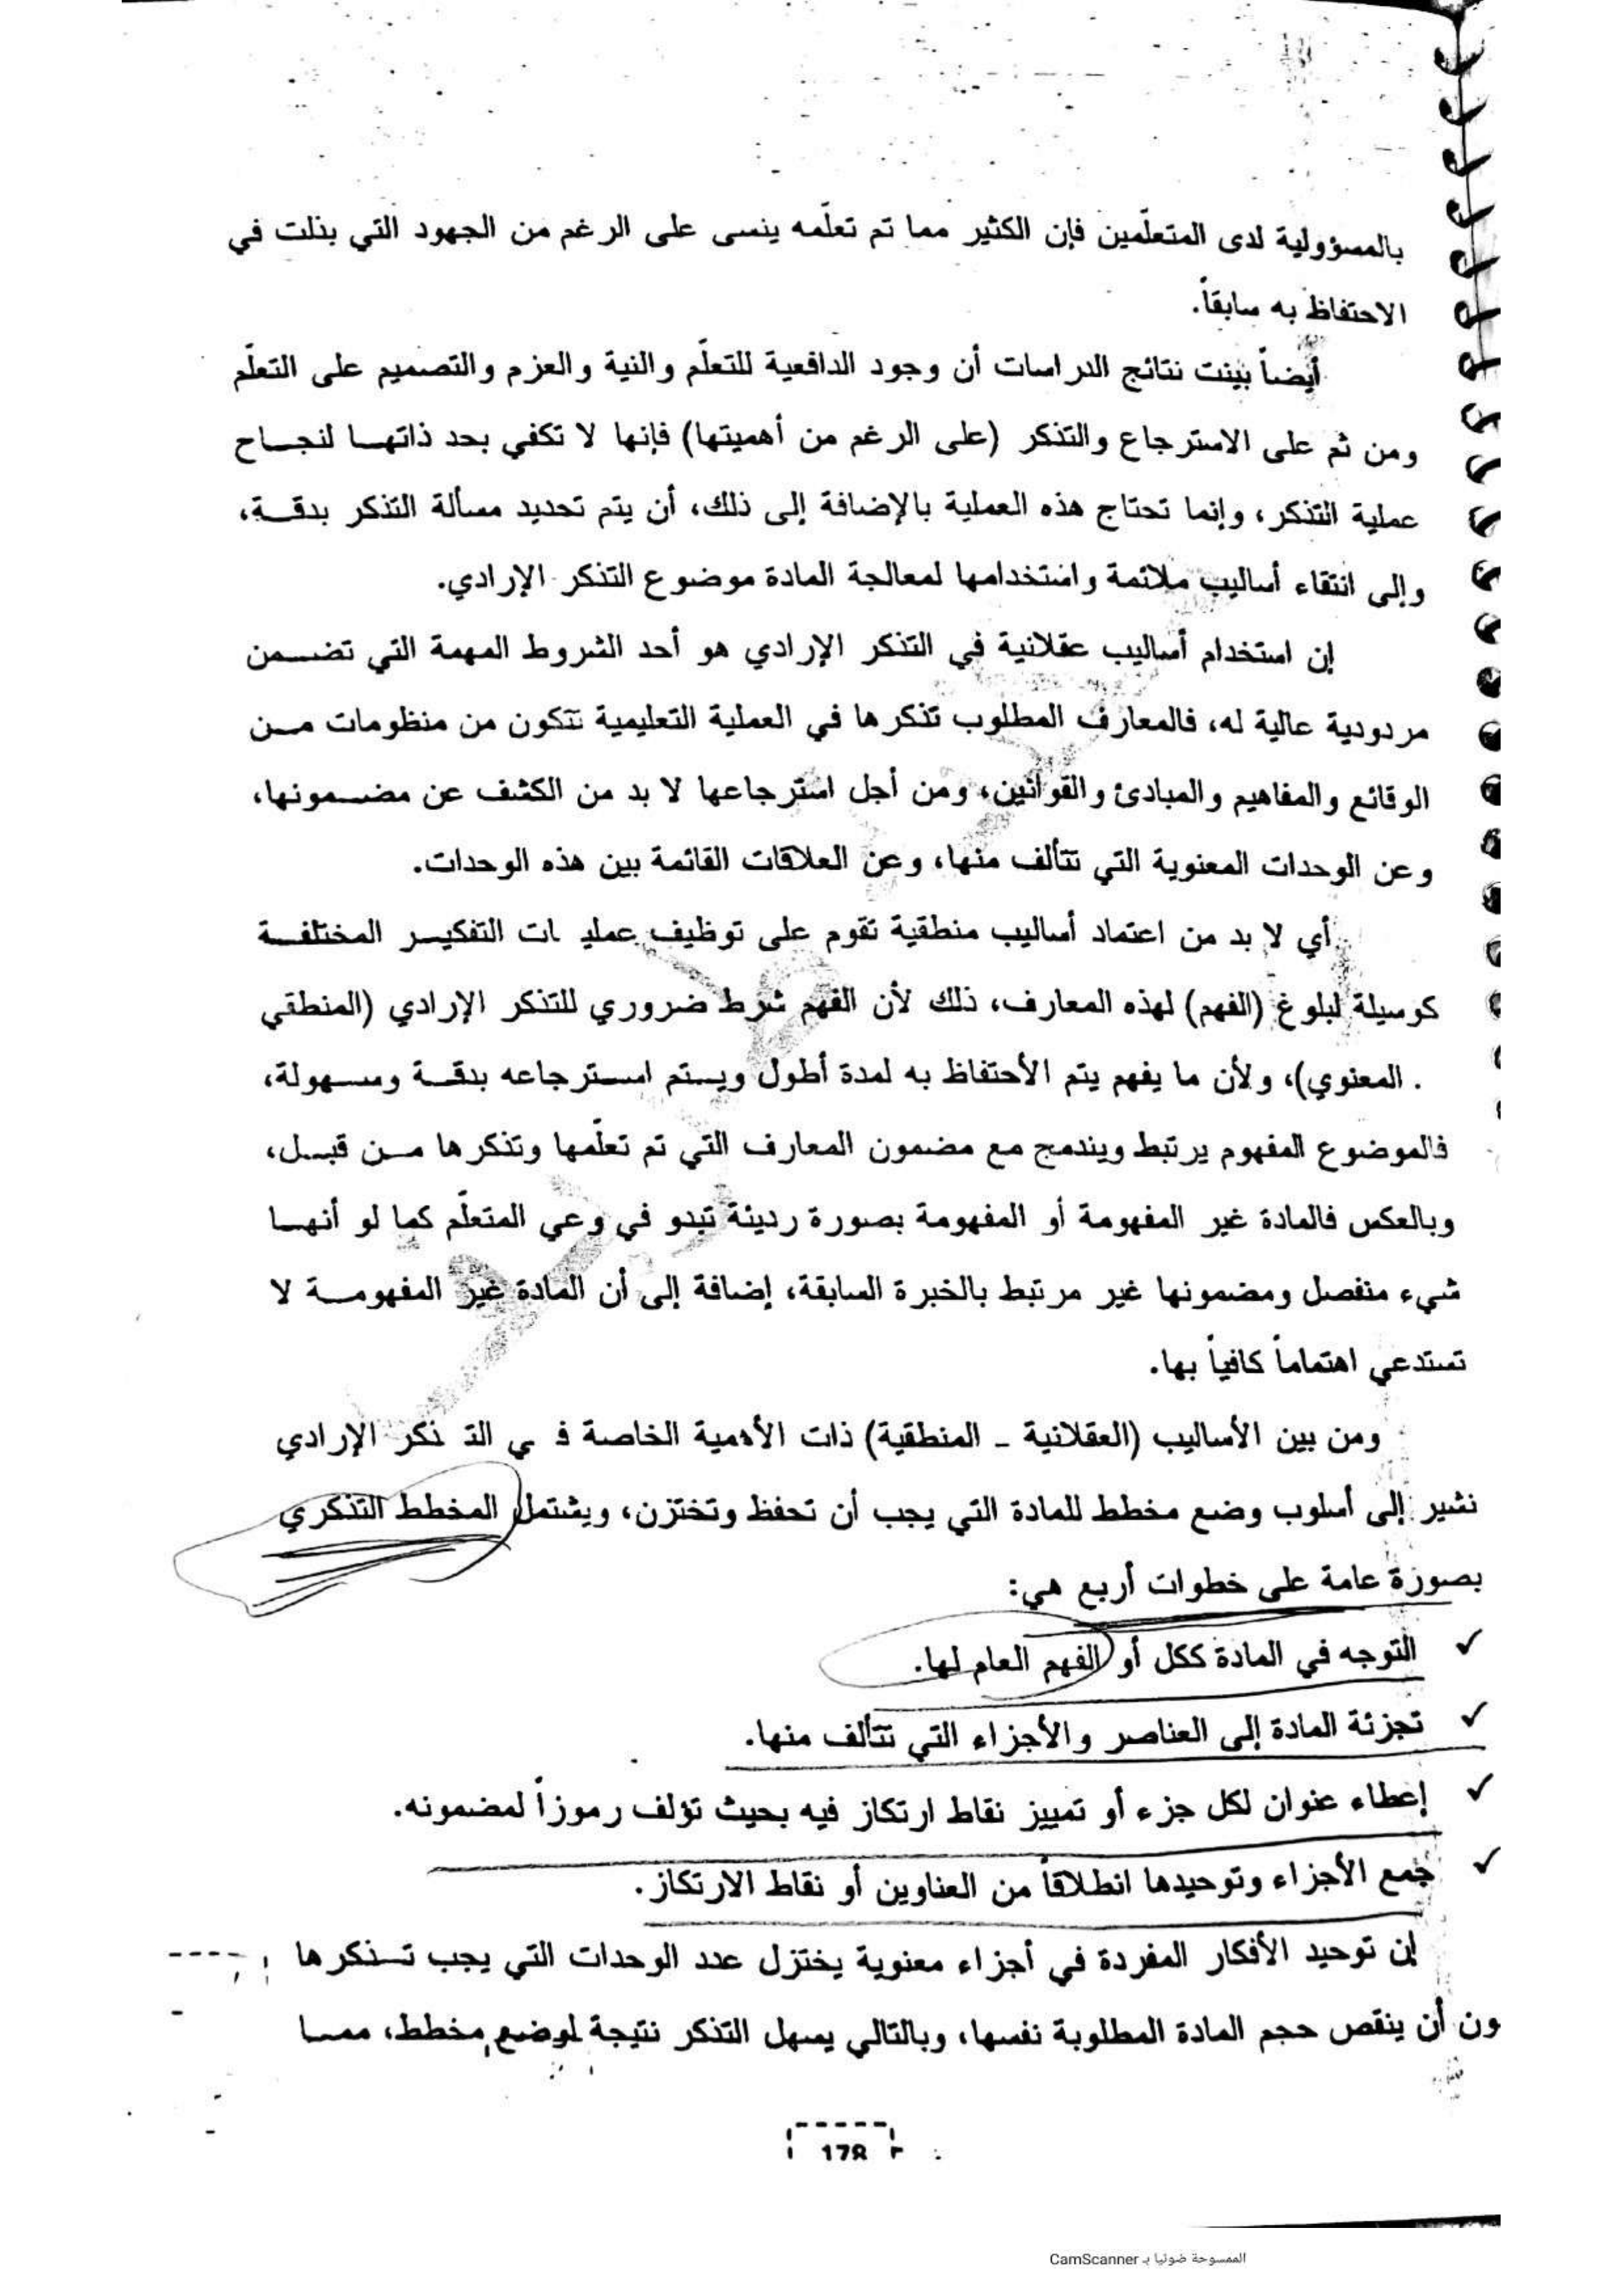 بالمسؤولية لدى المتعلّمين فإن الكثير مما تم تعلّمه ينسى على الرغم من الجهود التي بذلت في
الاحتفاظ به سابقاً.
أيضاً بينت نتائج الدراسات أن وجود الدافعية للتعلّم والنية والعزم والتصميم على التعلّم
ومن ثم على الاسترجاع والتذكر (على الرغم من أهميتها) فإنها لا تكفي بحد ذاتهـا لنجـاح
عملية التذكر، وإنما تحتاج هذه العملية بالإضافة إلى ذلك، أن يتم تحديد مسألة التذكر بدقـة،
وإلى انتقاء أساليب ملائمة واستخدامها لمعالجة المادة موضوع التذكر الإرادي.
إن استخدام أساليب عقلانية في التذكر الإرادي هو أحد الشروط المهمة التي تضـمن
مردودية عالية له، فالمعارف المطلوب تذكرها في العملية التعليمية تتكون من منظومات مـن
الوقائع والمفاهيم والمبادئ والقوانين، ومن أجل استرجاعها لا بد من الكشف عن مضـمونها،
وعن الوحدات المعنوية التي تتألف منها، وعن العلاقات القائمة بين هذه الوحدات.
أي لا بد من اعتماد أساليب منطقية تقوم على توظيف عمليـات التفكيـر المختلفـة
كوسيلة لبلوغ (الفهم) لهذه المعارف، ذلك لأن الفهم شرط ضروري للتذكر الإرادي (المنطقي
. المعنوي)، ولأن ما يفهم يتم الأحتفاظ به لمدة أطول ويـتم اسـترجاعه بدقـة وسـهولة،
فالموضوع المفهوم يرتبط ويندمج مع مضمون المعارف التي تم تعلّمها وتذكرها مـن قبـل،
وبالعكس فالمادة غير المفهومة أو المفهومة بصورة رديئة تبدو في وعي المتعلّم كما لو أنهـا
شيء منفصل ومضمونها غير مرتبط بالخبرة السابقة، إضافة إلى أن المادة غير المفهومـة لا
تستدعي اهتماماً كافياً بها.
ومن بين الأساليب (العقلانية - المنطقية) ذات الأهمية الخاصة فـي التـذكر الإرادي
نشير إلى أسلوب وضع مخطط للمادة التي يجب أن تحفظ وتختزن، ويشتمل المخطط التذكري
بصورة عامة على خطوات أربع هي:
✓ التوجه في المادة ككل أو الفهم العام لها.
✓ تجزئة المادة إلى العناصر والأجزاء التي تتألف منها.
✓ إعطاء عنوان لكل جزء أو تمييز نقاط ارتكاز فيه بحيث تؤلف رموزاً لمضمونه.
✓ جمع الأجزاء وتوحيدها انطلاقاً من العناوين أو نقاط الارتكاز.
إن توحيد الأفكار المفردة في أجزاء معنوية يختزل عدد الوحدات التي يجب تـذكرها
ون أن ينقص حجم المادة المطلوبة نفسها، وبالتالي يسهل التذكر نتيجة لوضع مخطط، ممـا
178
الممسوحة ضوئيا بـ CamScanner